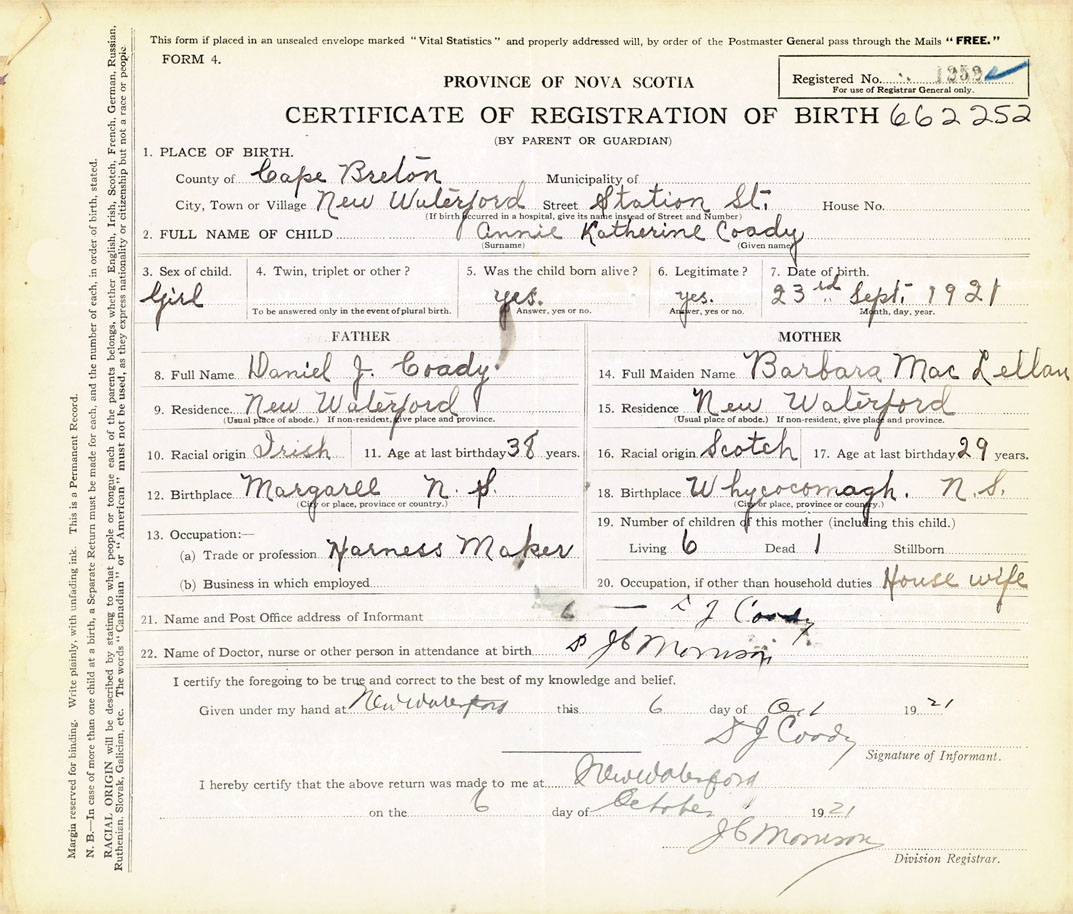 This form if placed in an unsealed envelope marked "Vital Statistics" and properly addressed will, by order of the Postmaster General pass through the Mails "FREE."
FORM 4.
Registered No. 1259
For use of Registrar General only.
PROVINCE OF NOVA SCOTIA
CERTIFICATE OF REGISTRATION OF BIRTH 662252
(BY PARENT OR GUARDIAN)
1. PLACE OF BIRTH.
County of Cape Breton Municipality of
City, Town or Village New Waterford Street Station St. House No.
(If birth occurred in a hospital, give its name instead of Street and Number)
2. FULL NAME OF CHILD Annie Katherine Coady
(Surname) (Given name)
3. Sex of child. 4. Twin, triplet or other? 5. Was the child born alive? 6. Legitimate? 7. Date of birth.
Girl yes. yes. 23rd Sept. 1921
To be answered only in the event of plural birth. Answer, yes or no. Answer, yes or no. Month, day, year.
FATHER MOTHER
8. Full Name Daniel J. Coady 14. Full Maiden Name Barbara Mac Lellan
9. Residence New Waterford 15. Residence New Waterford
(Usual place of abode.) If non-resident, give place and province. (Usual place of abode.) If non-resident, give place and province.
10. Racial origin Irish 11. Age at last birthday 38 years. 16. Racial origin Scotch 17. Age at last birthday 29 years.
12. Birthplace Margaree N. S. 18. Birthplace Whycocomagh. N.S.
(City or place, province or country.) (City or place, province or country.)
13. Occupation:— 19. Number of children of this mother (including this child.)
(a) Trade or profession Harness Maker Living 6 Dead 1 Stillborn
(b) Business in which employed 20. Occupation, if other than household duties House wife
21. Name and Post Office address of Informant J Coady
22. Name of Doctor, nurse or other person in attendance at birth Dr JC Morrison
I certify the foregoing to be true and correct to the best of my knowledge and belief.
Given under my hand at New Waterford this 6 day of Oct 1921
D J Coady
Signature of Informant.
I hereby certify that the above return was made to me at New Waterford
on the 6 day of October 1921
JC Morrison
Division Registrar.
Margin reserved for binding. Write plainly, with unfading ink. This is a Permanent Record.
N. B.—In case of more than one child at a birth, a Separate Return must be made for each, and the number of each, in order of birth, stated.
RACIAL ORIGIN will be described by stating to what people or tongue each of the parents belongs, whether English, Irish, Scotch, French, German, Russian,
Ruthenian, Slovak, Galician, etc. The words "Canadian" or "American" must not be used, as they express nationality or citizenship but not a race or people